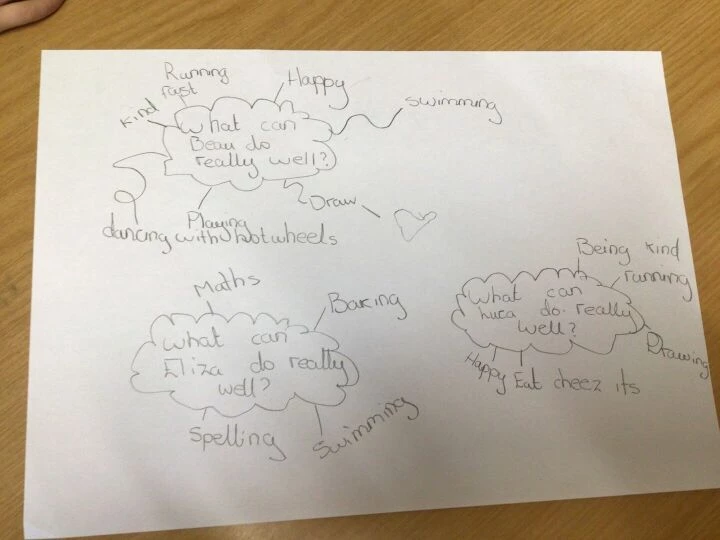 Running
fast
Happy
Kind
swimming
What can
Beau do
really well?
Draw
dancing
Playing
with hotwheels
Maths
Baking
What can
Eliza do really
well?
Spelling
Swimming
Being Kind
running
What can
do really
well?
Drawing
Happy
Eat cheez its